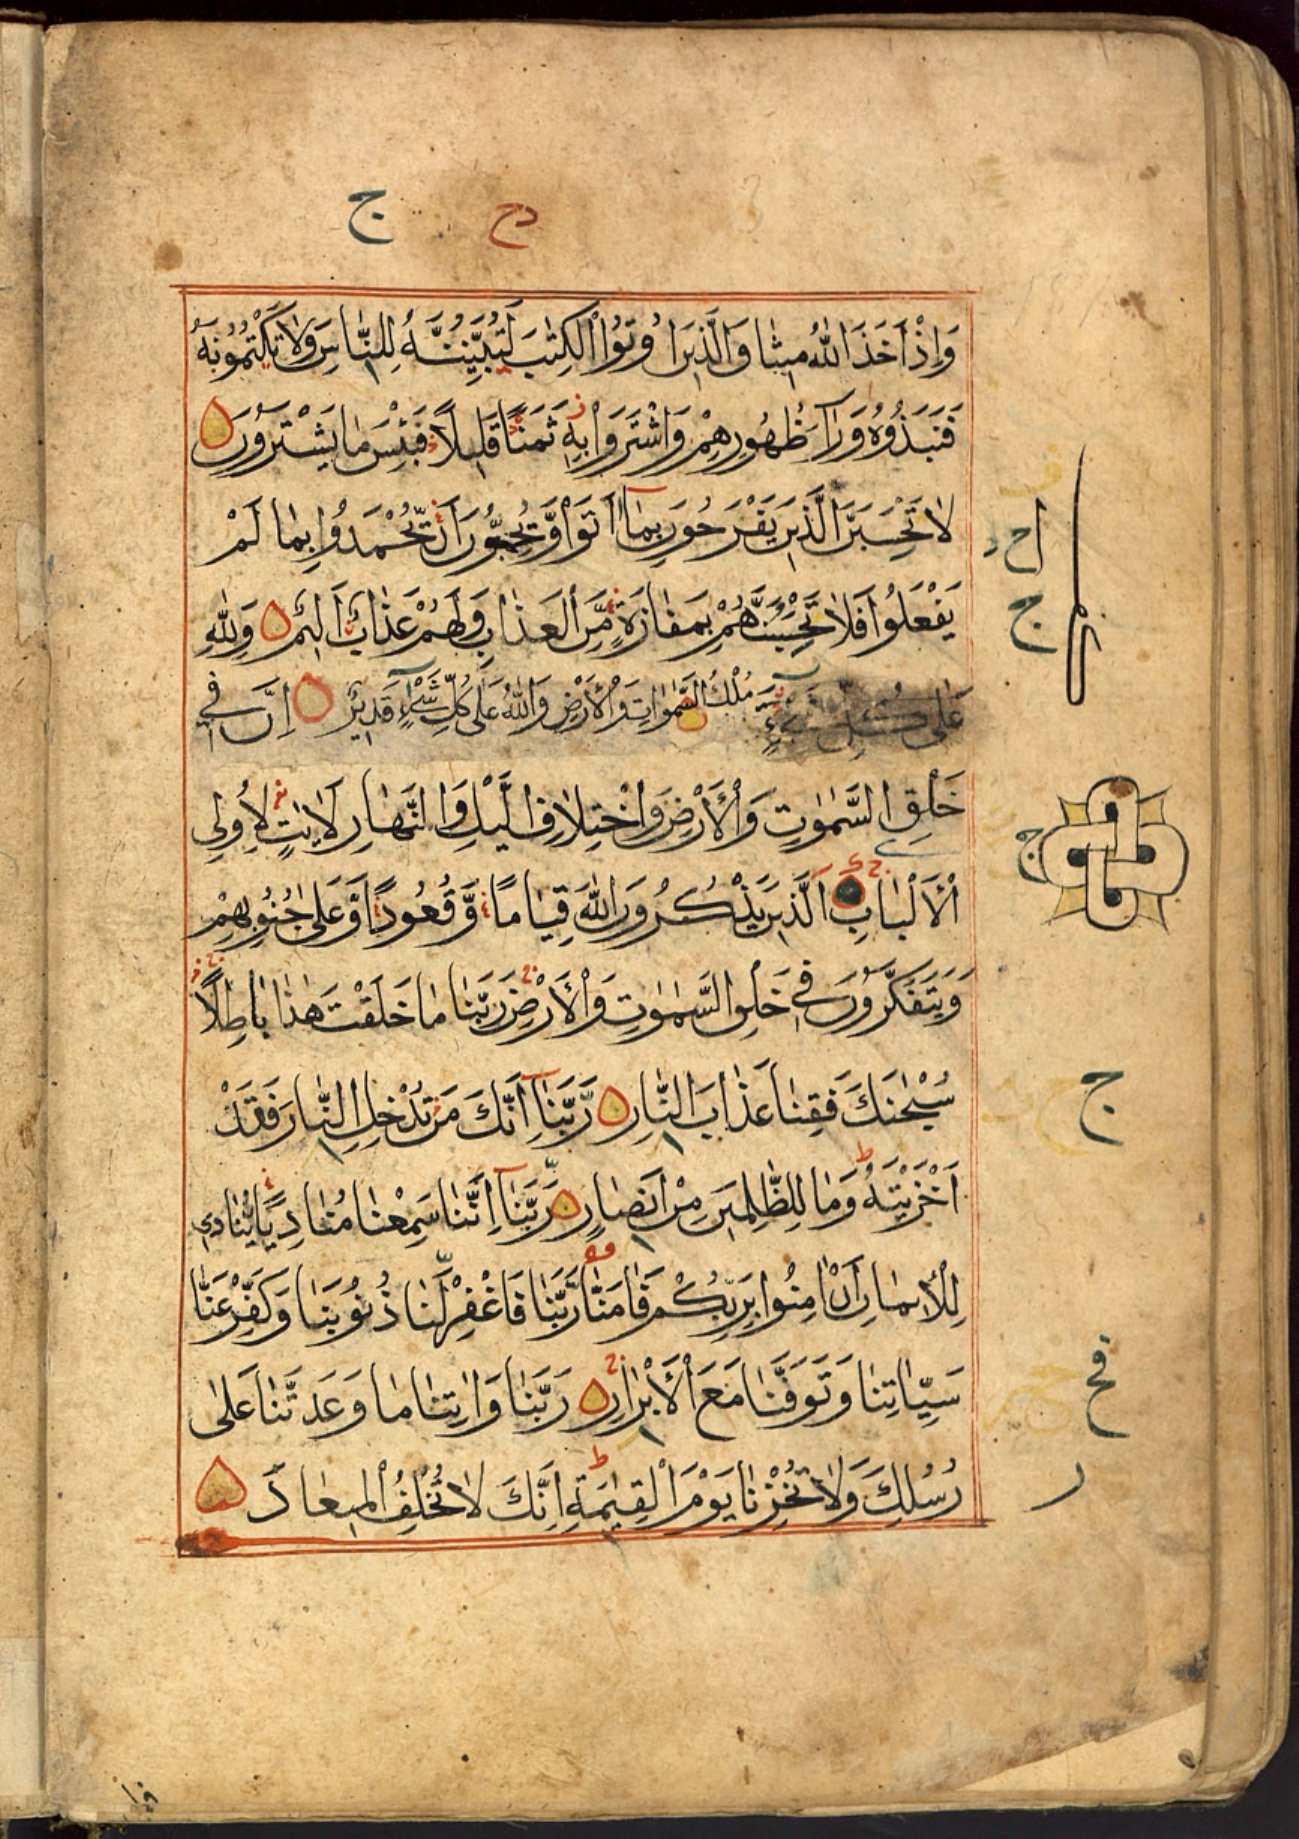 ج دح
وَإِذْ أَخَذَ اللّٰهُ مِيثَاقَ الَّذِينَ أُوتُوا الْكِتٰبَ لَتُبَيِّنُنَّهُ لِلنَّاسِ وَلَا تَكْتُمُونَهُ
فَنَبَذُوهُ وَرَآءَ ظُهُورِهِمْ وَاشْتَرَوْا بِهِ ثَمَنًا قَلِيلًا فَبِئْسَ مَا يَشْتَرُونَ
لَا تَحْسَبَنَّ الَّذِينَ يَفْرَحُونَ بِمَا أَتَوْا وَّيُحِبُّونَ أَنْ يُّحْمَدُوا بِمَا لَمْ
يَفْعَلُوا فَلَا تَحْسَبَنَّهُمْ بِمَفَازَةٍ مِّنَ الْعَذَابِ وَلَهُمْ عَذَابٌ أَلِيمٌ وَلِلّٰهِ
مُلْكُ السَّمٰوَاتِ وَالْأَرْضِ وَاللّٰهُ عَلَى كُلِّ شَيْءٍ قَدِيرٌ إِنَّ فِي
خَلْقِ السَّمٰوٰتِ وَالْأَرْضِ وَاخْتِلَافِ الَّيْلِ وَالنَّهَارِ لَاٰيٰتٍ لِأُولِي
الْأَلْبَابِ الَّذِينَ يَذْكُرُونَ اللّٰهَ قِيَامًا وَّقُعُودًا وَّعَلٰى جُنُوبِهِمْ
وَيَتَفَكَّرُونَ فِي خَلْقِ السَّمٰوٰتِ وَالْأَرْضِ رَبَّنَا مَا خَلَقْتَ هٰذَا بَاطِلًا
سُبْحٰنَكَ فَقِنَا عَذَابَ النَّارِ رَبَّنَا إِنَّكَ مَنْ تُدْخِلِ النَّارَ فَقَدْ
أَخْزَيْتَهُ وَمَا لِلظّٰلِمِينَ مِنْ أَنْصَارٍ رَبَّنَا إِنَّنَا سَمِعْنَا مُنَادِيًا يُّنَادِي
لِلْإِيمَانِ أَنْ اٰمِنُوا بِرَبِّكُمْ فَاٰمَنَّا رَبَّنَا فَاغْفِرْ لَنَا ذُنُوبَنَا وَكَفِّرْ عَنَّا
سَيِّاٰتِنَا وَتَوَفَّنَا مَعَ الْأَبْرَارِ رَبَّنَا وَاٰتِنَا مَا وَعَدْتَّنَا عَلٰى
رُسُلِكَ وَلَا تُخْزِنَا يَوْمَ الْقِيٰمَةِ إِنَّكَ لَا تُخْلِفُ الْمِيعَادَ